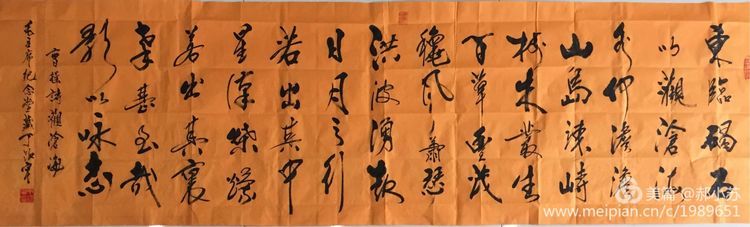 東臨碣石
以觀滄海
水何澹澹
山島竦峙
樹木叢生
百草豐茂
穐風蕭瑟
洪波湧起
日月之行
若出其中
星漢燦爛
若出其裏
幸甚至哉
歌以咏志
曹操詩觀滄海
毛主席纪念堂
美篇@郝小苏
www.meipian.cn/c/1989651